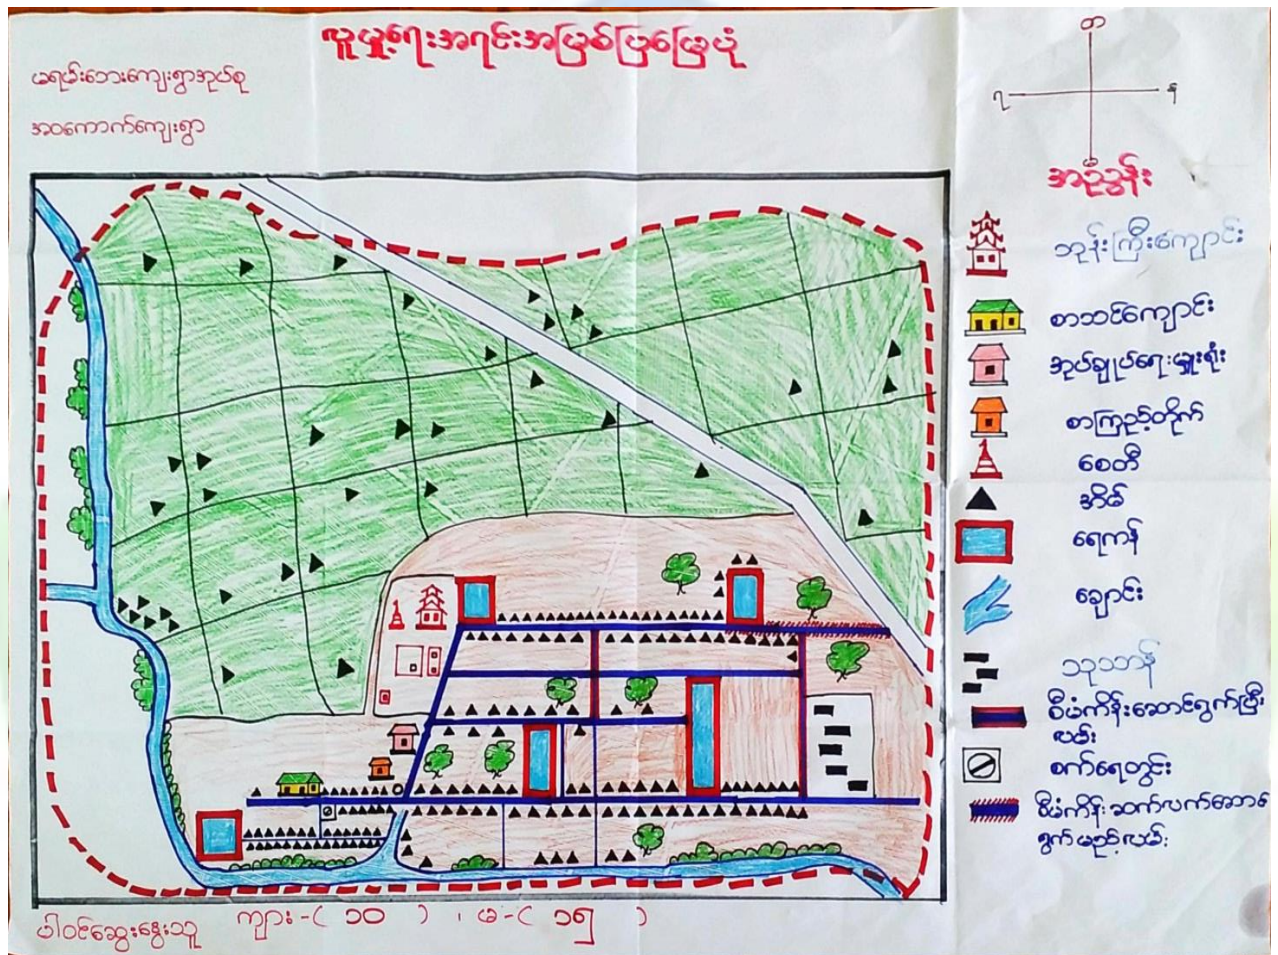 လူမှု့ရေးအရင်းအမြစ်ပြမြေပုံ
မရမ်းဘေးကျေးရွာအုပ်စု
အဝကောက်ကျေးရွာ
တ
ရ
န
အညွှန်း
ဘုန်းကြီးကျောင်း
စာသင်ကျောင်း
အုပ်ချုပ်ရေးမှူးရုံး
စာကြည့်တိုက်
စေတီ
အိမ်
ရေကန်
ချောင်း
သုသာန်
စီမံကိန်းဆောင်ရွက်ပြီး
လမ်း
စက်ရေတွင်း
စီမံကိန်းဆက်လက်ဆောင်
ရွက်မည့်လမ်း
ပါဝင်ဆွေးနွေးသူ ကျား-( ၁၀ ) ၊ မ-( ၁၅ )